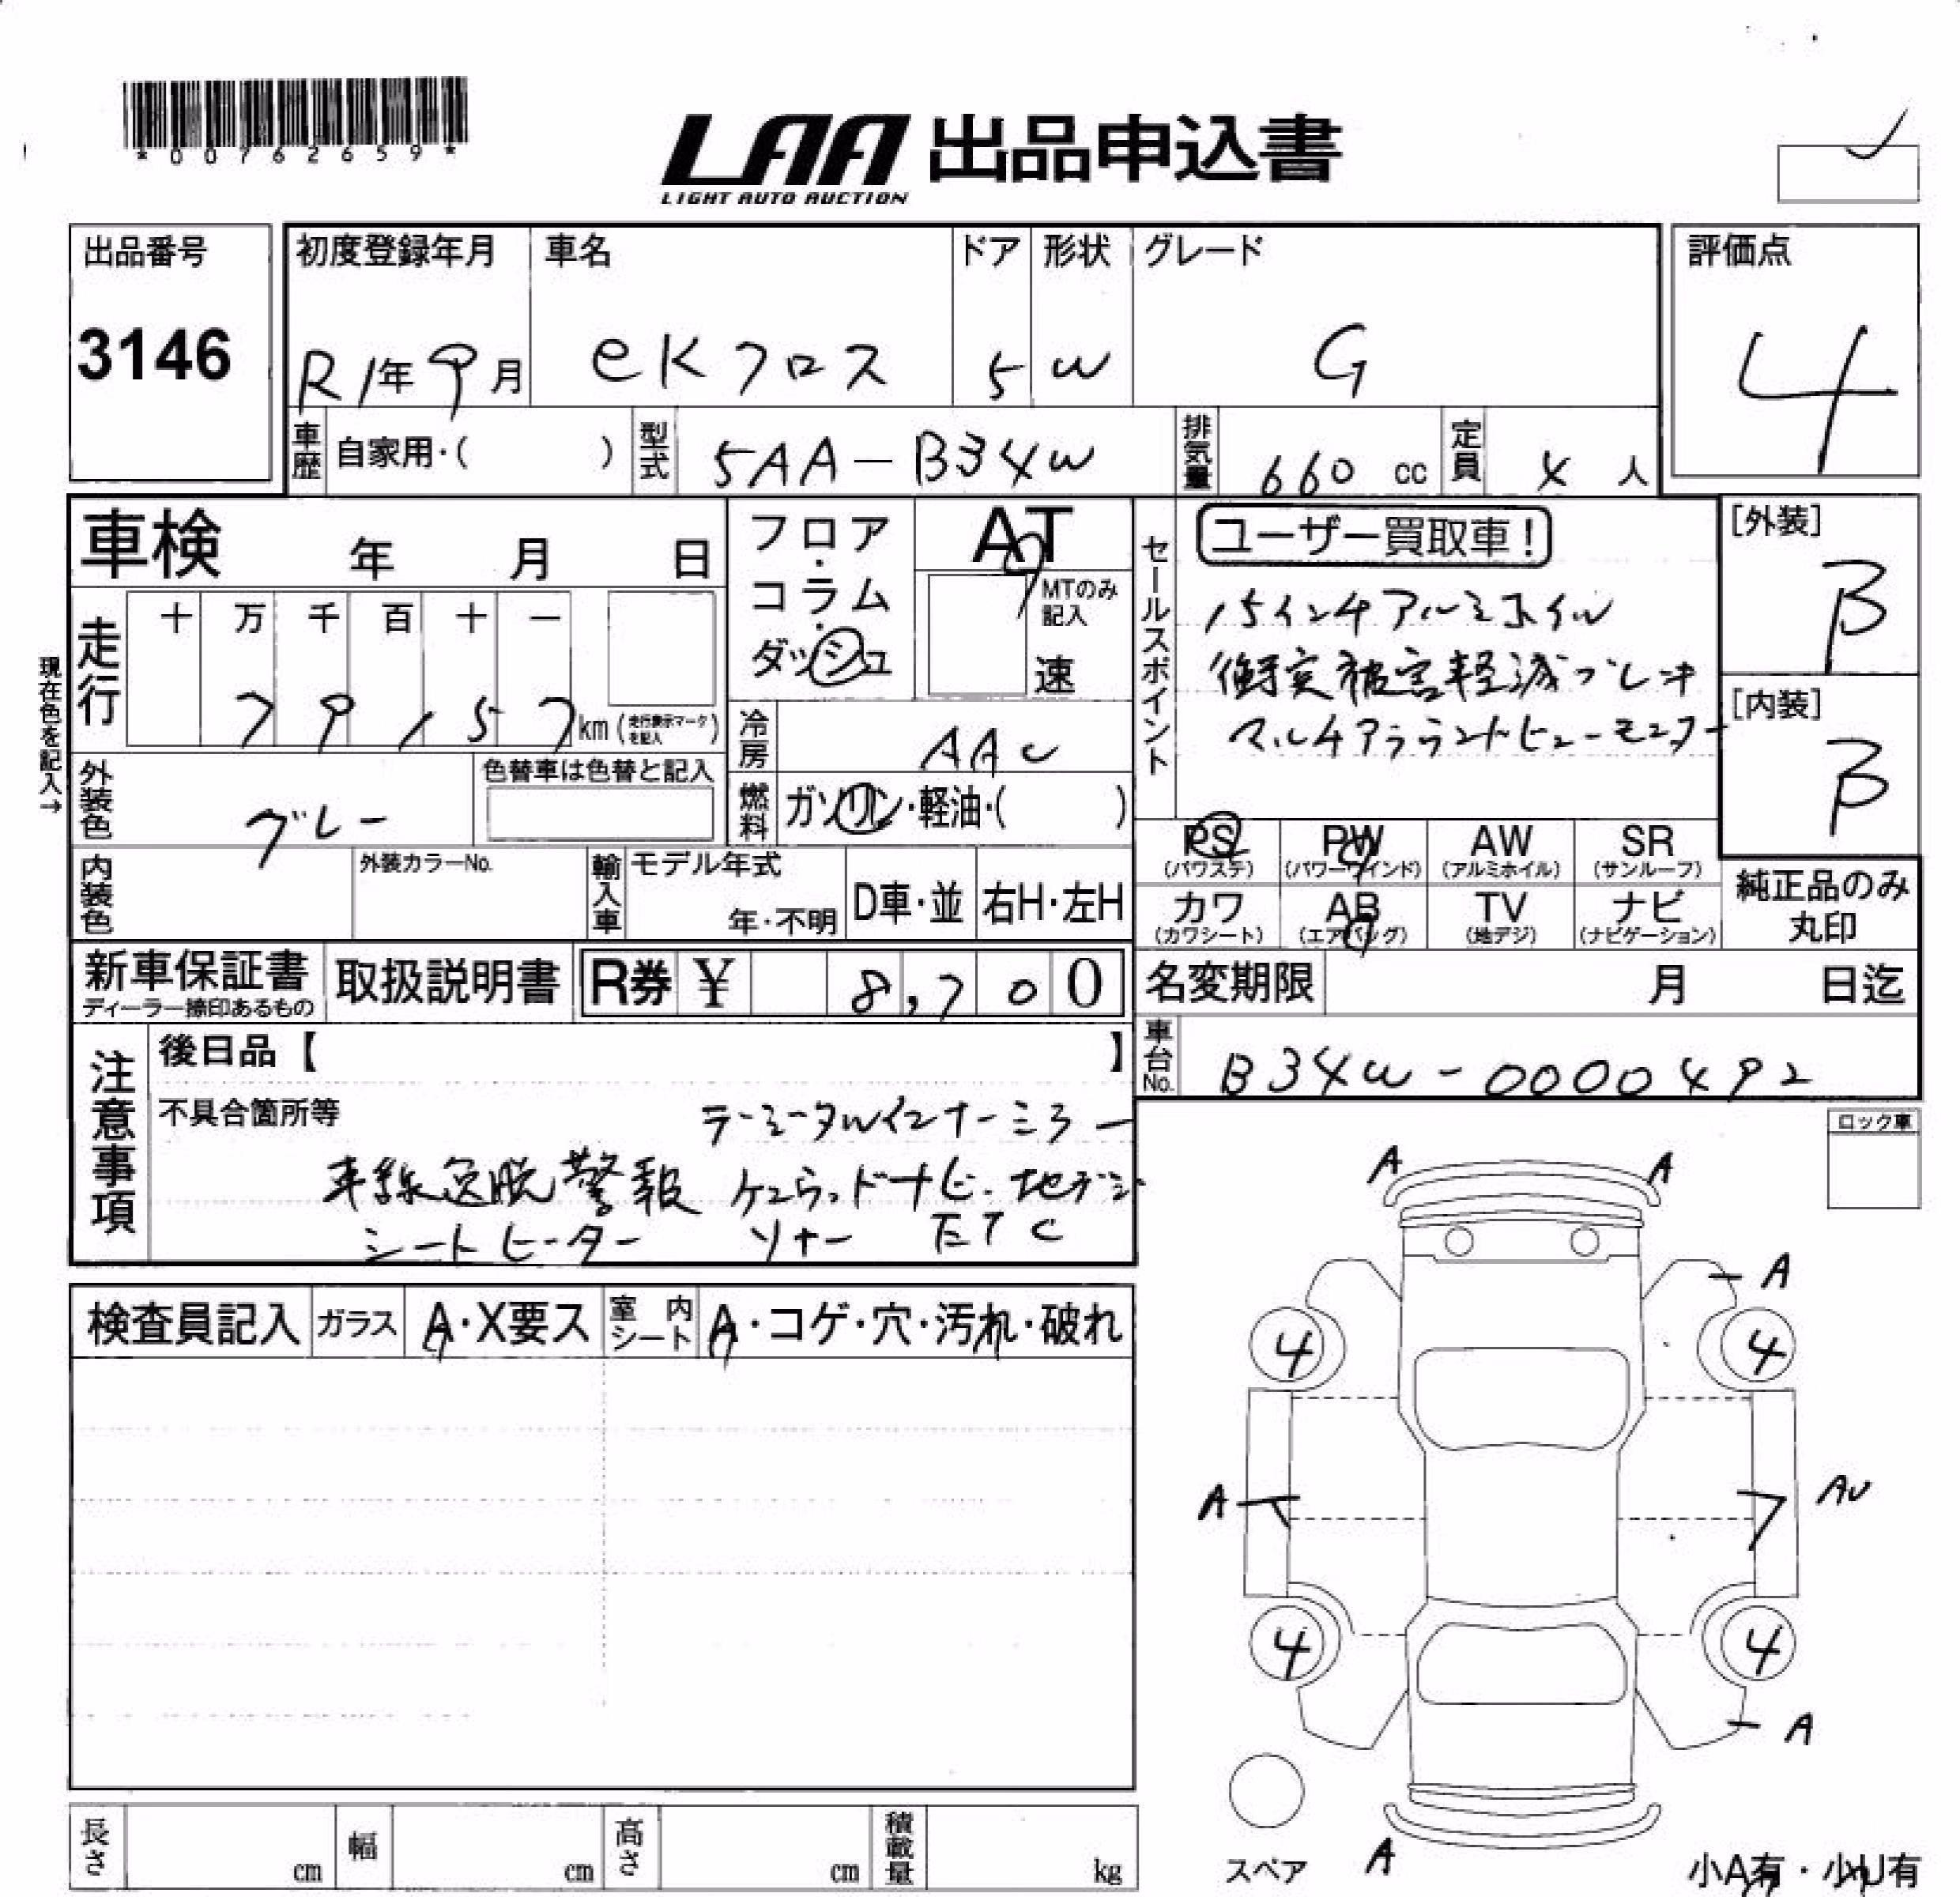 *00762659*
LAA 出品申込書
LIGHT AUTO AUCTION
出品番号
3146
初度登録年月
R1年9月
車名
eKクロス
ドア
5
形状
W
グレード
G
評価点
4
車歴 自家用・( )
型式 5AA-B34W
排気量 660 cc
定員 4 人
車検 年 月 日
現在色を記入→
走行
十 万 千 百 十 一
7 9 1 5 7 km (走行表示マークを記入)
フロア・コラム・ダッシュ
AT
MTのみ記入
速
冷房 AAC
燃料 ガソリン・軽油・( )
外装色 グレー
色替車は色替と記入
内装色
外装カラーNo.
輸入車
モデル年式
年・不明
D車・並
右H・左H
セールスポイント
ユーザー買取車!
15インチアルミホイル
衝突被害軽減ブレーキ
マルチアラウンドビューモニター
[外装]
B
[内装]
B
PS (パワステ)
PW (パワーウインド)
AW (アルミホイル)
SR (サンルーフ)
カワ (カワシート)
AB (エアバッグ)
TV (地デジ)
ナビ (ナビゲーション)
純正品のみ丸印
新車保証書
ディーラー捺印あるもの
取扱説明書
R券 ¥ 8,700
名変期限 月 日迄
車台No. B34W-0000492
注意事項
後日品【 】
不具合箇所等
デジタルインナーミラー
車線逸脱警報 ケンウッドナビ・地デジ
シートヒーター ソナー ETC
ロック車
検査員記入
ガラス A・X要ス
室内シート A・コゲ・穴・汚れ・破れ
A A
A
4 4
A AU
4 4
A
A
スペア
小A有・小U有
長さ cm
幅 cm
高さ cm
積載量 kg